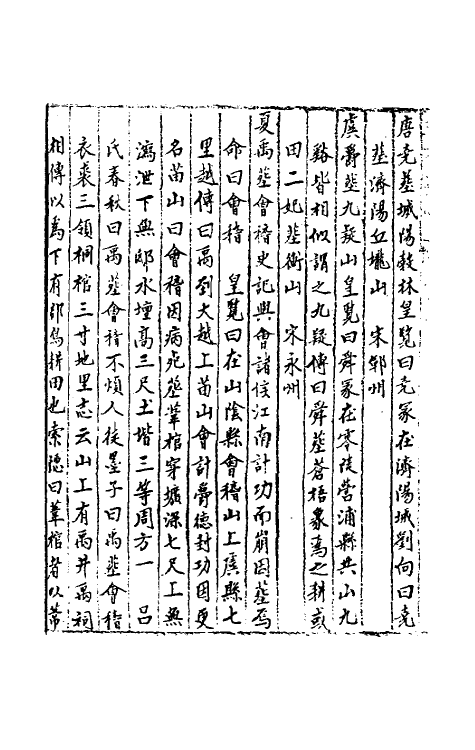 唐堯墓城陽穀林皇覽曰堯冢在濟陽城劉向曰堯
塟濟陽丘壠山　宋鄆州
虞舜塟九疑山皇覽曰舜冢在零陵營浦縣其山九
谿皆相似謂之九疑傳曰舜塟蒼梧象爲之耕或
田二妃塟衡山　宋永州
夏禹塟會稽史記與會諸侯江南計功而崩因塟焉
命曰會稽　皇覽曰在山陰縣會稽山上虞縣七
里越傳曰禹到大越上苗山會計爵德封功因更
名苗山曰會稽因病死塟葦棺穿壙深七尺上無
瀉泄下無邸水壇高三尺土堦三等周方一　呂
氏春秋曰禹塟會稽不煩人徒墨子曰禹塟會稽
衣裘三領桐棺三寸地里志云山上有禹井禹祠
相傳以爲下有群鳥耘田也索隱曰葦棺者以葦